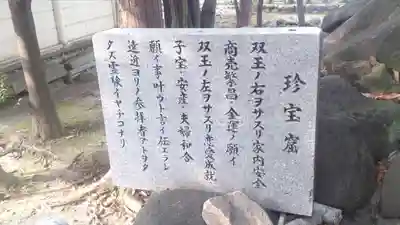 珍宝窟
双玉ノ右ヲサスリ家内安全
商売繁昌・金運ノ願イ
双玉ノ左ヲサスリ恋愛成就
子宝・安産・夫婦和合
願イ事叶ウト言イ伝エラレ
遠近ヨリノ参拝者アトヲタ
タズ霊検イヤチコナリ